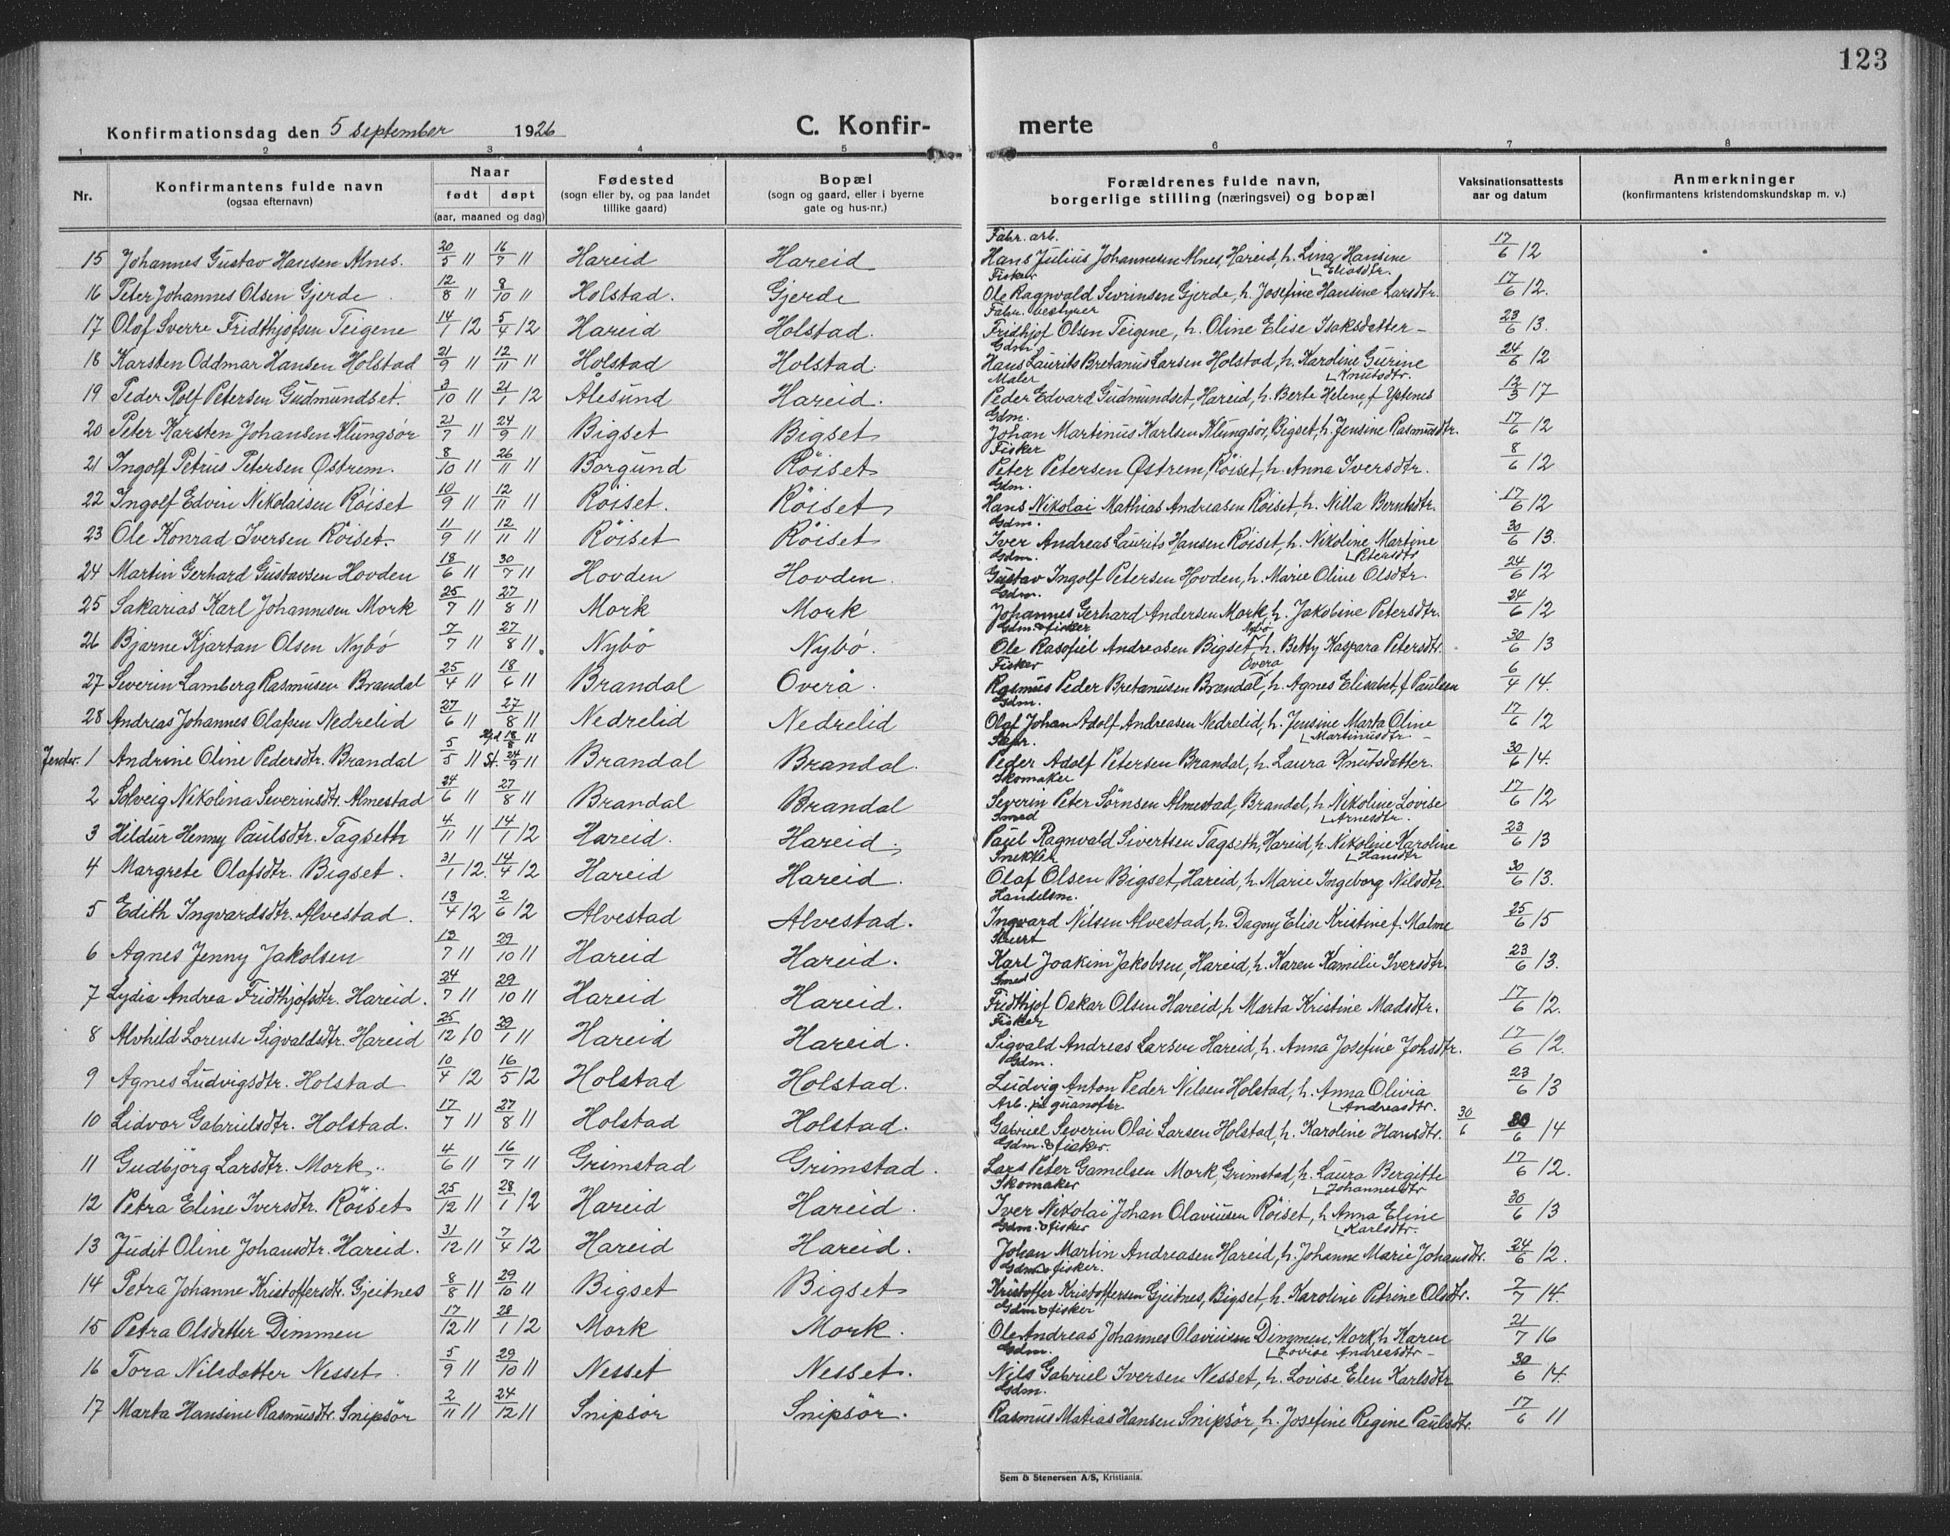 123
Konfirmationsdag den 5 september 1926 C. Konfir- merte
1 2 3 4 5 6 7 8
Nr. Konfirmantens fulde navn (ogsaa efternavn) Naar født døpt (aar, maaned og dag) Fødested (sogn eller by, og paa landet tillike gaard) Bopæl (sogn og gaard, eller i byerne gate og hus-nr.) Forældrenes fulde navn, borgerlige stilling (næringsvei) og bopæl Vaksinationsattests aar og datum Anmerkninger (konfirmantens kristendomskundskap m. v.)
Fabr. arb.
15 Johannes Gustav Hansen Alnes. 20/5 11 16/7 11 Hareid Hareid Hans Julius Johannesen Alnes, Hareid, h. Lina Hansine Eliasdtr. 17/6 12
Fisker
16 Peter Johannes Olsen Gjerde 12/8 11 8/10 11 Holstad. Gjerde Ole Ragnvald Sevrinsen Gjerde, h. Josefine Hansine Larsdtr. 17/6 12.
Fabr. bestyrer
17 Olaf Sverre Fridthjofsen Teigene 14/1 12 5/4 12 Hareid Holstad. Fridhjof Olsen Teigene, h. Oline Elise Isaksdatter - 23/6 13.
Gdm.
18 Karsten Oddmar Hansen Holstad 21/9 11 12/11 11 Holstad Holstad. Hans Laurits Bretanus Larsen Holstad, h. Karoline Gurine Knutsdtr. 24/6 12
Maler
19 Peder Rolf Petersen Gudmundset. 3/10 11 21/1 12 Ålesund Hareid. Peder Edvard Gudmundset, Hareid, h. Berte Helene, f. Ystenes 12/3 17
Gdm.
20 Peter Karsten Johansen Klungsör 21/7 11 24/9 11 Bigset Bigset Johan Martinus Karlsen Klungsör, Bigset, h. Jensine Rasmusdtr. 17/6 12
Fisker
21 Ingolf Petrus Petersen Østrem. 8/10 11 26/11 11 Borgund Röiset Peter Petersen Østrem, Röiset, h. Anna Iversdtr. 8/6 12
Gdm.
22 Ingolf Edvin Nikolaisen Röiset 10/9 11 12/11 11 Röiset. Röiset Hans Nikolai Mathias Andreasen Röiset, h. Nilla Berntsdtr. 17/6 12
Gdm.
23 Ole Konrad Iversen Röiset. 11/9 11 12/11 11 Röiset Röiset Iver Andreas Laurits Hansen Röiset, h. Nikoline Martine Petersdtr 30/6 13.
Gdm.
24 Martin Gerhard Gustavsen Hovden 18/6 11 30/7 11 Hovden Hovden. Gustav Ingolf Petersen Hovden, h. Marie Oline Olsdtr. 24/6 12
Gdm.
25 Sakarias Karl Johannesen Mork 25/7 11 27/8 11 Mork Mork Johannes Gerhard Andersen Mork, h. Jakobine Petersdtr. 24/6 12
Gdm. & fisker Nybö
26 Bjarne Kjartan Olsen Nybö 7/7 11 27/8 11. Nybö Nybö. Ole Rasofiel Andreasen Bigset, h. Betty Kaspara Petersdtr. 30/6 13
Fisker Overå
27 Severin Lamberg Rasmusen Brandal 25/4 11 18/6 11 Brandal Overå. Rasmus Peder Bretanusen Brandal, h. Agnes Elisabet, f. Paulsen 6/4 14.
Gdm.
28 Andreas Johannes Olafsen Nedrelid 27/6 11 27/8 11 Nedrelid Nedrelid Olaf Johan Adolf Andreasen Nedrelid, h. Jensine Marta Oline Martinusdtr - 17/6 12
Jenter. 1 Andrine Oline Pedersdtr. Brandal 5/5 11 18/8 11 St. 24/9 11 Brandal Brandal. Peder Adolf Petersen Brandal, h. Laura Knutsdatter. 30/6 14.
Skomaker
2 Solveig Nikolina Severinsdtr. Almestad 24/6 11 27/8 11 Brandal Brandal Severin Peter Sörnsen Almestad, Brandal, h. Nikoline Lovise Arnesdtr. 17/6 12
Smed
3 Hildur Henny Paulsdtr. Tagseth 4/11 11 14/1 12 Hareid. Hareid. Paul Ragnvald Sivertsen Tagseth, Hareid, h. Nikoline Karoline Hansdtr 23/6 13
Snekker
4 Margrete Olafsdtr. Bigset. 31/1 12. 14/4 12 Hareid Hareid. Olaf Olsen Bigset, Hareid, h. Marie Ingeborg Nilsdtr. 30/6 13.
Handelsm.
5 Edith Ingvardsdtr. Alvestad. 13/4 12 2/6 12 Alvestad Alvestad. Ingvard Nilsen Alvestad, h. Dagny Elise Kristine f. Malme 25/6 15
6 Agnes Jenny Jakobsen 12/7 11 29/10 11 Hareid Hareid. Karl Joakim Jakobsen, Hareid, h. Karen Kamilie Iversdtr. 23/6 13.
Smed
7 Lydia Andrea Fridthjofsdtr. Hareid. 24/7 11 29/10 11 Hareid Hareid. Fridthjof Oskar Olsen Hareid, h. Marta Kristine Madsdtr. 17/6 12.
Fisker
8 Alvhild Lorense Sigvaldsdtr. Hareid 25/12 10 29/1 11 Hareid Hareid. Sigvald Andreas Larsen Hareid, h. Anna Josefine Johsdtr. 17/6 12.
Gdm.
9 Agnes Ludvigsdtr. Holstad 10/4 12 16/5 12 Holstad Holstad. Ludvig Anton Peder Nilsen Holstad, h. Anna Olivia Andreasdtr. 23/6 13
Arb. på guanofbr.
10 Lidvor Gabrielsdtr. Holstad. 17/7 11 27/8 11 Holstad Holstad. Gabriel Severin Olai Larsen Holstad, h. Karoline Hansdtr. 30/6 30/6 14
Gdm. & fisker.
11 Gudbjörg Larsdtr. Mork. 4/6 11 16/7 11 Grimstad Grimstad. Lars Peter Gamelsen Mork, Grimstad, h. Laura Bergitte Johannesdtr 17/6 12.
Skomaker
12 Petra Eline Iversdtr. Röiset 25/12 11 28/1 12 Hareid Hareid. Iver Nikolai Johan Olaviusen Röiset, h. Anna Eline Karlsdtr. 30/6 13
Gdm. & fisker
13 Judit Oline Johansdtr. Hareid. 31/12 11 7/4 12 Hareid Hareid. Johan Martin Andreasen Hareid, h. Johanne Marie Johansdtr. 24/6 12.
Gdm & fisker.
14 Petra Johanne Kristoffersdtr. Gjeitnes 8/8 11 29/10 11 Bigset Bigset Kristoffer Kristoffersen Gjeitnes, Bigset, h. Karoline Petrine Olsdtr. 7/7 14.
Gdm & fisker
15 Petra Olsdatter Dimmen 17/12 11 28/1 12 Mork Mork. Ole Andreas Johannes Olaviusen Dimmen, Mork, h. Karen Lovise Andreasdtr - 21/7 16
Gdm.
16 Tora Nilsdatter Nesset. 5/9 11 29/10 11 Nesset Nesset. Nils Gabriel Iversen Nesset, h. Lovise Elen Karlsdtr 30/6 14.
Gdm.
17 Marta Hansine Rasmusdtr. Snipsör 2/11 11 24/12 11 Snipsör Snipsör. Rasmus Matias Hansen Snipsör, h. Josefine Regine Paulsdtr. 17/6 11
Sem & Stenersen A/S, Kristiania.